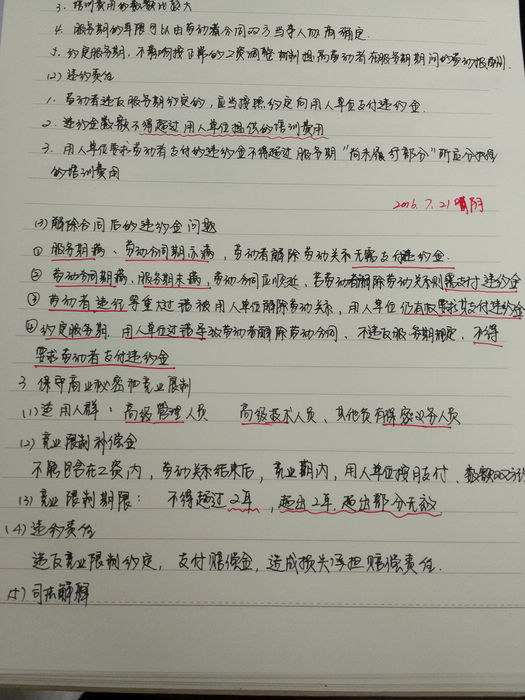 3. 培训费用的数额比较大
4. 服务期的年限可以由劳动者合同双方当事人协商确定.
5. 约定服务期,不影响按正常的工资调整机制提高劳动者在服务期期间的劳动报酬.
(2) 违约责任
1. 劳动者违反服务期约定的,应当按照约定向用人单位支付违约金.
2. 违约金数额不得超过用人单位提供的培训费用
3. 用人单位要求劳动者支付的违约金不得超过服务期“尚未履行部分”所应分摊
的培训费用
2016.7.21 晴 阴
(3) 解除合同后的违约金问题
① 服务期满、劳动合同期亦满,劳动者解除劳动关系无需支付违约金.
② 劳动合同期满,服务期未满,劳动合同应顺延,若劳动者解除劳动关系则需支付违约金
③ 劳动者进行严重大过错被用人单位解除劳动关系,用人单位仍有权要求其支付违约金
④ 约定服务期,用人单位过错导致劳动者解除劳动合同,不违反服务期规定,不得
要求劳动者支付违约金
3 保守商业秘密和竞业限制
(1) 适用人群:高级管理人员 高级技术人员、其他负有保密义务人员
(2) 竞业限制补偿金
不能包含在工资内,劳动关系结束后,竞业期内,用人单位按月支付、数额双方
(3) 竞业限制期限: 不得超过2年,超出2年,超出部分无效
(4) 违约责任
违反竞业限制约定,支付赔偿金,造成损失承担赔偿责任.
(5) 司法解释